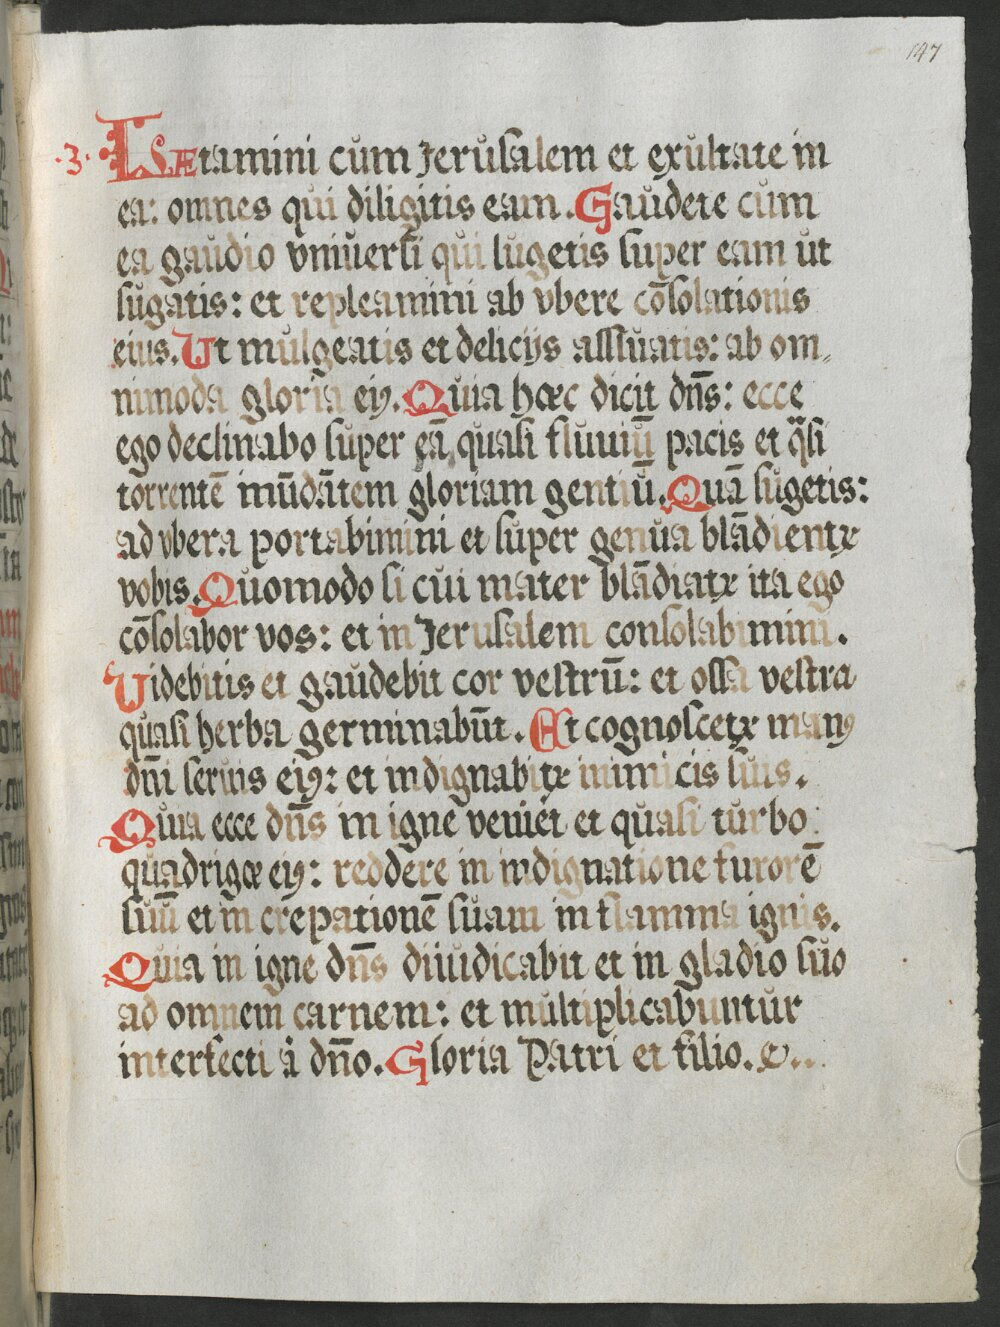 147
·3· Lætamini cum Jerusalem et exultate in
ea: omnes qui diligitis eam. Gaudete cum
ea gaudio vniuersi qui lugetis super eam ut
sugatis: et repleamini ab vbere cōsolationis
eius. Ut mulgeatis et delicijs affluatis: ab om„
nimoda gloria eiꝰ. Quia hæc dicit dn̄s: ecce
ego declinabo super eā, quasi fluuiū pacis et q̈si
torrentē inūdātem gloriam gentiū. Quā sugetis:
ad vbera portabimini et super genua blādientꝛ
vobis. Quomodo si cui mater blādiatꝛ ita ego
cōsolabor vos: et in Jerusalem consolabimini.
Videbitis et gaudebit cor vestrū: et ossa vestra
quasi herba germinabūt. Et cognoscetꝛ manꝰ
dn̄i seruis eiꝰ: et indignabitꝛ inimicis suis.
Quia ecce dn̄s in igne veniet et quasi turbo
quadrigæ eiꝰ: reddere in indignatione furorē
suū et in crepationē suam in flamma ignis.
Quia in igne dn̄s diiudicabit et in gladio suo
ad omnem carnem: et multiplicabuntur
interfecti à dn̄o. Gloria Patri et filio. &..